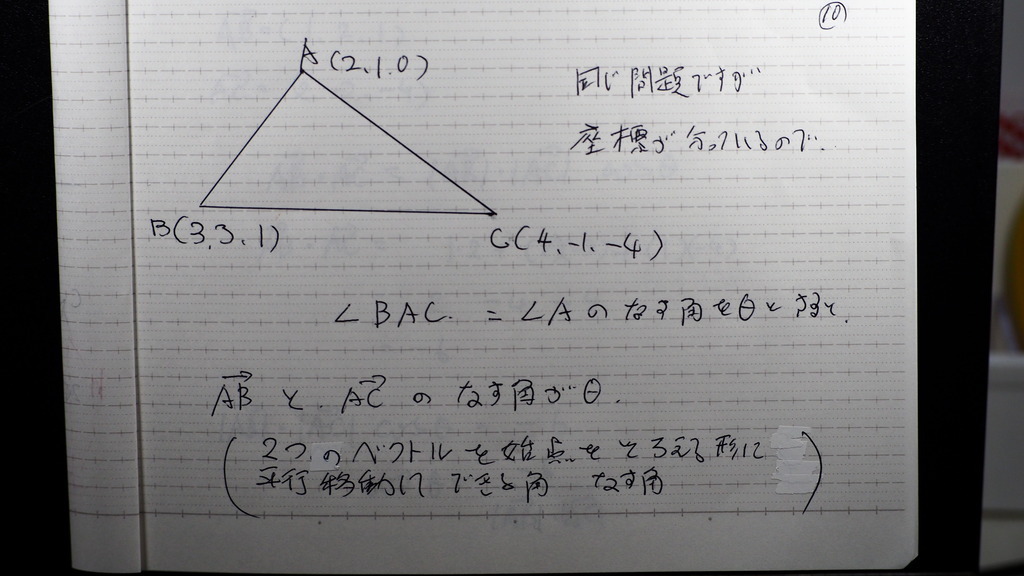 ⑩
A(2.1.0)
同じ問題ですが
座標が分っているので.
B(3.3.1)
C(4.-1.-4)
∠BAC. = ∠Aのなす角をθとすると.
ABと.ACのなす角がθ.
(2つのベクトルを始点をそろえる形に
平行移動してできる角 なす角)